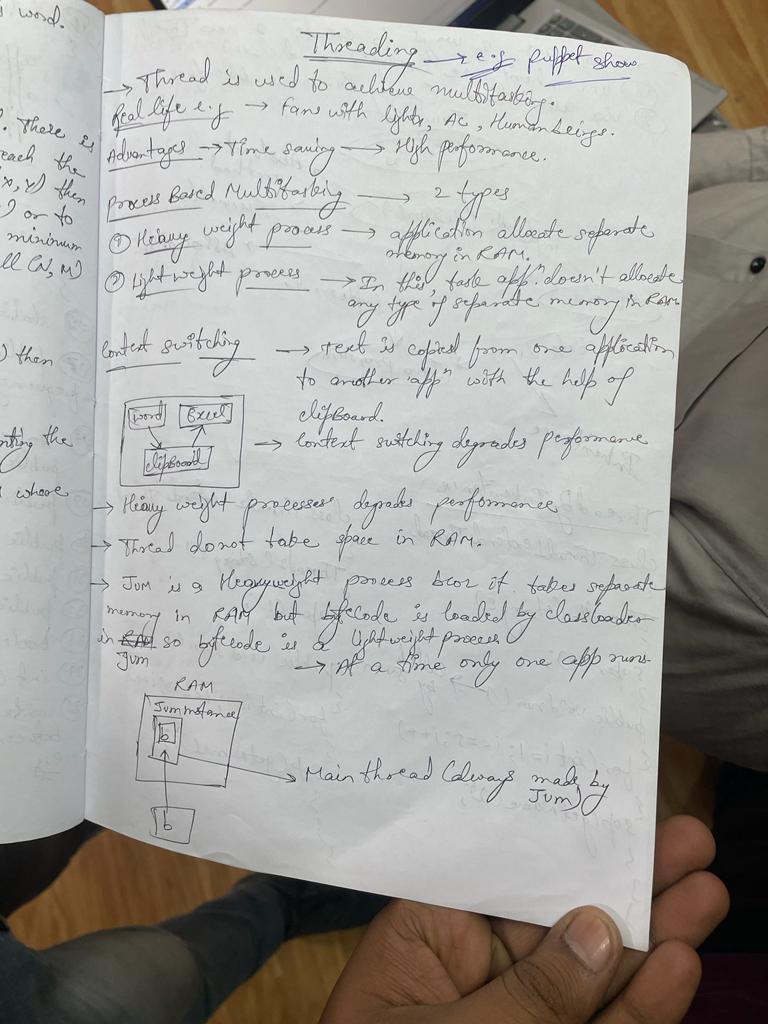 word.
There is
each the
x, y) then
) or to
minimum
ll (N, M)
) then
nting the
where
Threading → e.g puppet show
→ Thread is used to achieve multitasking.
Real life e.g → Fans with lights, AC, Human beings.
Advantages → Time saving → High performance.
Process Based Multitasking → 2 types
① Heavy weight process → application allocate separate
memory in RAM.
② Light weight process → In this, task appⁿ doesn't allocate
any type of separate memory in RAM
Context switching → Text is copied from one application
to another appⁿ with the help of
clipBoard.
word Excel
clipBoard
→ Context switching degrades performance
→ Heavy weight processes degrades performance
→ Thread do not take space in RAM.
→ JVM is a Heavyweight process bcoz it takes separate
memory in RAM but bytecode is loaded by classloader
in RAM so bytecode is a lightweight process
JVM
→ At a time only one app runs.
RAM
JVM instance
b
→ Main thread (always made by
JVM)
b